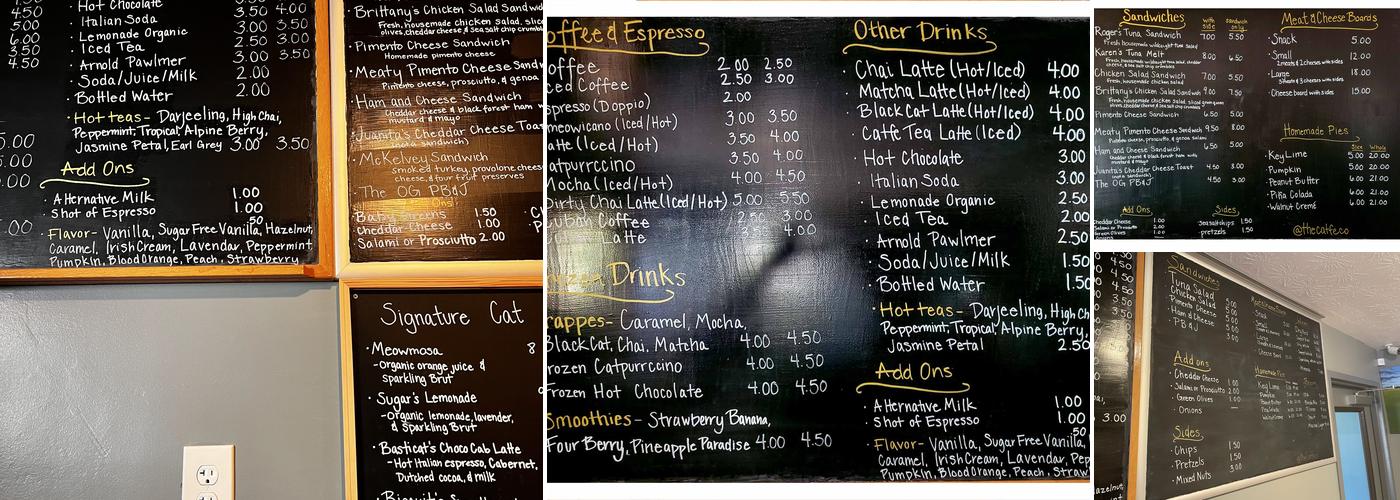 Hot Chocolate
Italian Soda 3.50 4.00
Lemonade Organic 3.00
Iced Tea 2.50 3.00
Arnold Pawlmer 3.00 3.50
Soda/Juice/Milk 2.00
Bottled Water 2.00
Hot teas- Darjeeling, High Chai,
Peppermint, Tropical, Alpine Berry,
Jasmine Petal, Earl Grey 3.00 3.50
Add Ons
Alternative Milk 1.00
Shot of Espresso 1.00
.50
Flavor- Vanilla, Sugar Free Vanilla, Hazelnut,
Caramel, Irish Cream, Lavendar, Peppermint
Pumpkin, Blood Orange, Peach, Strawberry
Brittany's Chicken Salad Sandw
Fresh, housemade chicken salad, slice
olives, cheddar cheese & sea salt chip crumbl
Pimento Cheese Sandwich
Homemade pimento cheese
Meaty Pimento Cheese Sandw
Pimento cheese, prosciutto, & genoa
Ham and Cheese Sandwich
Cheddar cheese & black forest ham w
mustard & mayo
Juanita's Cheddar Cheese Toas
(not a sandwich)
McKelvey Sandwich
smoked turkey, provolone cheese
cheese, & four fruit preserves
The OG PB&J
Baby Greens 1.50
Cheddar Cheese 1.00
Salami or Prosciutto 2.00
Signature Cat
Meowmosa 8
-Organic orange juice &
sparkling Brut
Sugar's Lemonade
-Organic lemonade, lavender,
& Sparkling Brut
Basticat's Choco Cab Latte
-Hot Italian espresso, Cabernet,
Dutched cocoa, & milk
offee & Espresso
offee 2.00 2.50
ced Coffee 2.50 3.00
spresso (Doppio) 2.00
meowicano (Iced/Hot) 3.00 3.50
atte (Iced/Hot) 3.50 4.00
atpurrccino 3.50 4.00
Mocha (Iced/Hot) 4.00 4.50
Dirty Chai Latte (Iced/Hot) 5.00 5.50
Cuban Coffee 2.50 3.00
Latte 3.50 4.00
Drinks
rappes- Caramel, Mocha,
Black Cat, Chai, Matcha 4.00 4.50
rozen Catpurrccino 4.00 4.50
Frozen Hot Chocolate 4.00 4.50
Smoothies- Strawberry Banana,
Four Berry, Pineapple Paradise 4.00 4.50
Other Drinks
Chai Latte (Hot/Iced) 4.00
Matcha Latte (Hot/Iced) 4.00
Black Cat Latte (Hot/Iced) 4.00
Cafe Tea Latte (Iced) 4.00
Hot Chocolate 3.00
Italian Soda 3.00
Lemonade Organic 2.50
Iced Tea 2.00
Arnold Pawlmer 2.50
Soda/Juice/Milk 1.50
Bottled Water 1.50
Hot teas- Darjeeling, High Ch
Peppermint, Tropical, Alpine Berry,
Jasmine Petal 2.50
Add Ons
Alternative Milk 1.00
Shot of Espresso 1.00
.50
Flavor- Vanilla, Sugar Free Vanilla,
Caramel, Irish Cream, Lavendar, Pep
Pumpkin, Blood Orange, Peach, Straw
Sandwiches with side sandwich only
Roger's Tuna Sandwich 7.00 5.50
Karen's Tuna Melt 8.00 6.50
Chicken Salad Sandwich 7.00 5.50
Fresh, housemade chicken salad
Brittany's Chicken Salad Sandwich 9.00 7.50
Pimento Cheese Sandwich 6.50 5.00
Meaty Pimento Cheese Sandwich 9.50 8.00
Ham and Cheese Sandwich 6.50 5.00
Juanita's Cheddar Cheese Toast 4.50 3.00
(not a sandwich)
The OG PB&J 4.50 3.00
Add Ons
Cheddar Cheese 1.00
Salami or Prosciutto 2.00
Green Olives 1.00
Sides
Sea salt chips 1.50
pretzels 1.50
Meat & Cheese Boards
Snack 5.00
Small 12.00
2 meats & 2 cheeses with sides
Large 18.00
3 meats & 3 cheeses with sides
Cheese board with sides 15.00
Homemade Pies
Slice Whole
Key Lime 5.00 20.00
Pumpkin 5.00 20.00
Peanut Butter 6.00 21.00
Piña Colada 6.00 21.00
Walnut Cremé 6.00 21.00
@thecatfe.co
Sandwiches
Tuna Salad 5.00
Chicken Salad 5.00
Pimento Cheese 5.00
Ham & Cheese 5.00
PB&J 3.00
Add ons
Cheddar Cheese 1.00
Salami or Prosciutto 2.00
Green Olives 1.00
Onions
Sides
Chips 1.50
Pretzels 1.50
Mixed Nuts 3.00
Homemade Pies
Key Lime
Pumpkin
Peanut Butter